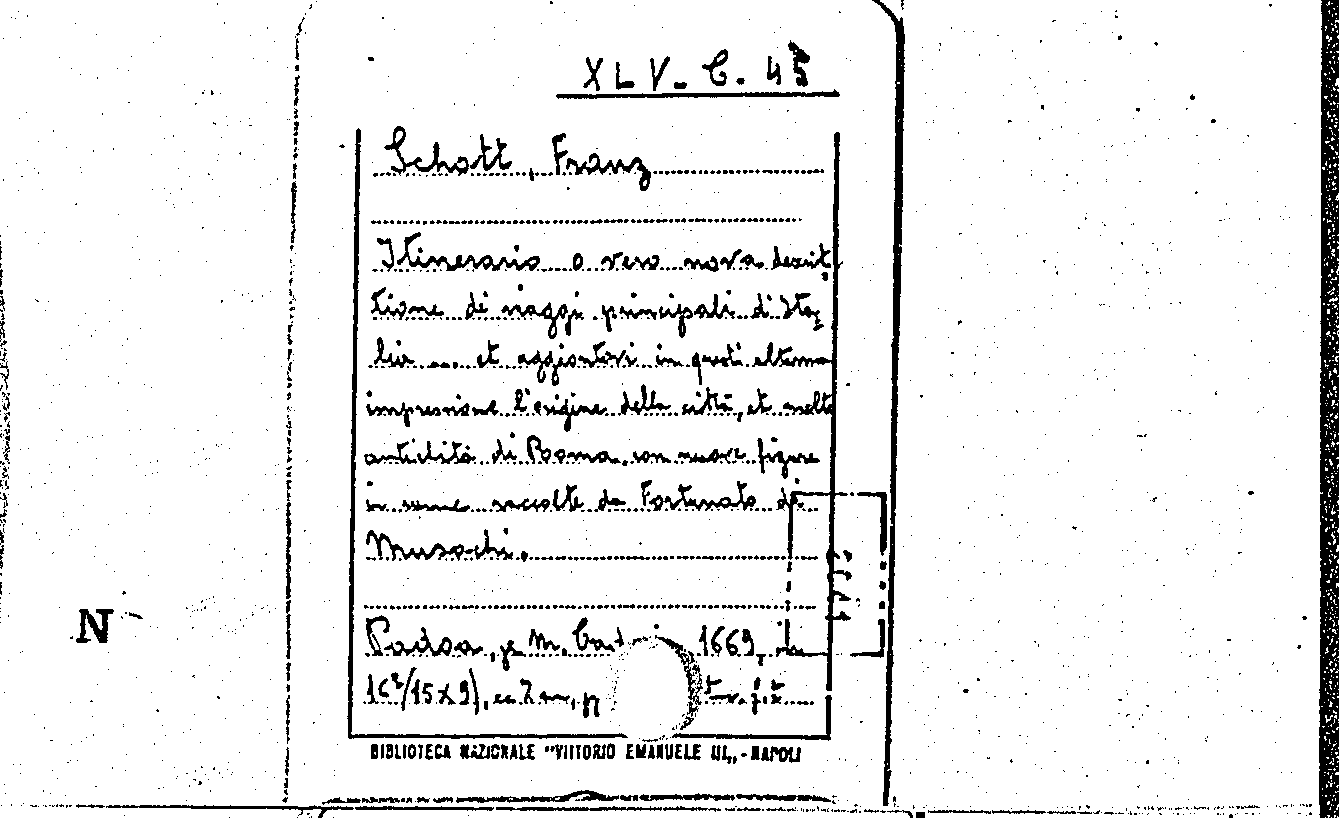 XLV-C. 45
Schott, Franz
Itinerario o vero nova descrit
tione di viaggi principali d'Ita,
lia .... et aggiontovi in questi ultima
impressione l'origine della città, et molte
antichità di Roma, con nuove figure
in rame raccolte da Fortunato da
Musochi.
N
Padoa, M. 1669, in
16°/15x9),
BIBLIOTECA NAZIONALE "VITTORIO EMANUELE III,, - NAPOLI